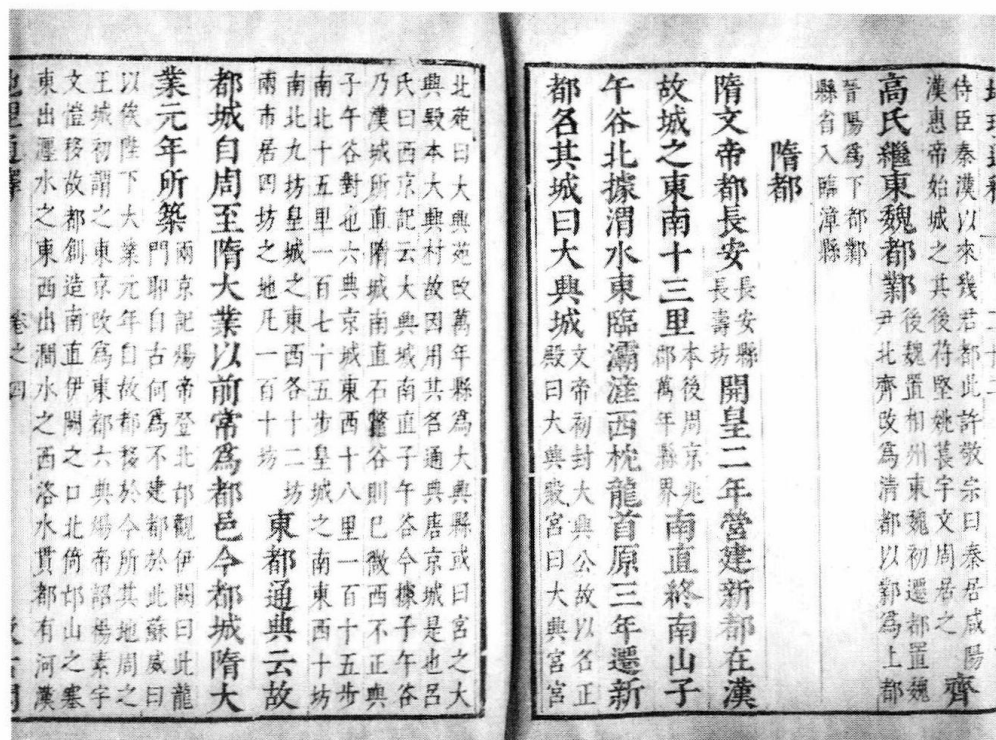 侍臣秦漢以來幾君都此許敬宗曰秦居咸陽
漢惠帝始城之其後苻堅姚萇宇文周居之
齊
高氏繼東魏都鄴
後魏置相州東魏初遷都置魏
尹北齊改爲清都以鄴爲上都
晉陽爲下都鄴
縣省入臨漳縣
隋都
隋文帝都長安
長安縣
長壽坊
開皇二年營建新都在漢
故城之東南十三里
本後周京兆
郡萬年縣界
南直終南山子
午谷北據渭水東臨灞滻西枕龍首原三年遷新
都名其城曰大興城
文帝初封大興公故以名正
殿曰大興殿宮曰大興宮宮
北苑曰大興苑改萬年縣爲大興縣或曰宮之大
興殿本大興村故因用其名通典唐京城是也呂
氏曰西京記云大興城南直子午谷今據子午谷
乃漢城所直隋城南直石鼈谷則巳微西不正與
子午谷對也六典京城東西十八里一百十五步
南北十五里一百七十五步皇城之南東西十坊
南北九坊皇城之東西各十二坊
兩市居四坊之地凡一百十坊
東都通典云故
都城自周至隋大業以前常爲都邑今都城隋大
業元年所築
兩京記煬帝登北邙觀伊闕曰此龍
門耶自古何爲不建都於此蘇威曰
以俟陛下大業元年自故都移於今所其地周之
王城初謂之東京改爲東都六典煬帝詔楊素宇
文愷移故都創造南直伊闕之口北倚邙山之塞
東出瀍水之東西出澗水之西洛水貫都有河漢
地里通釋
卷之四